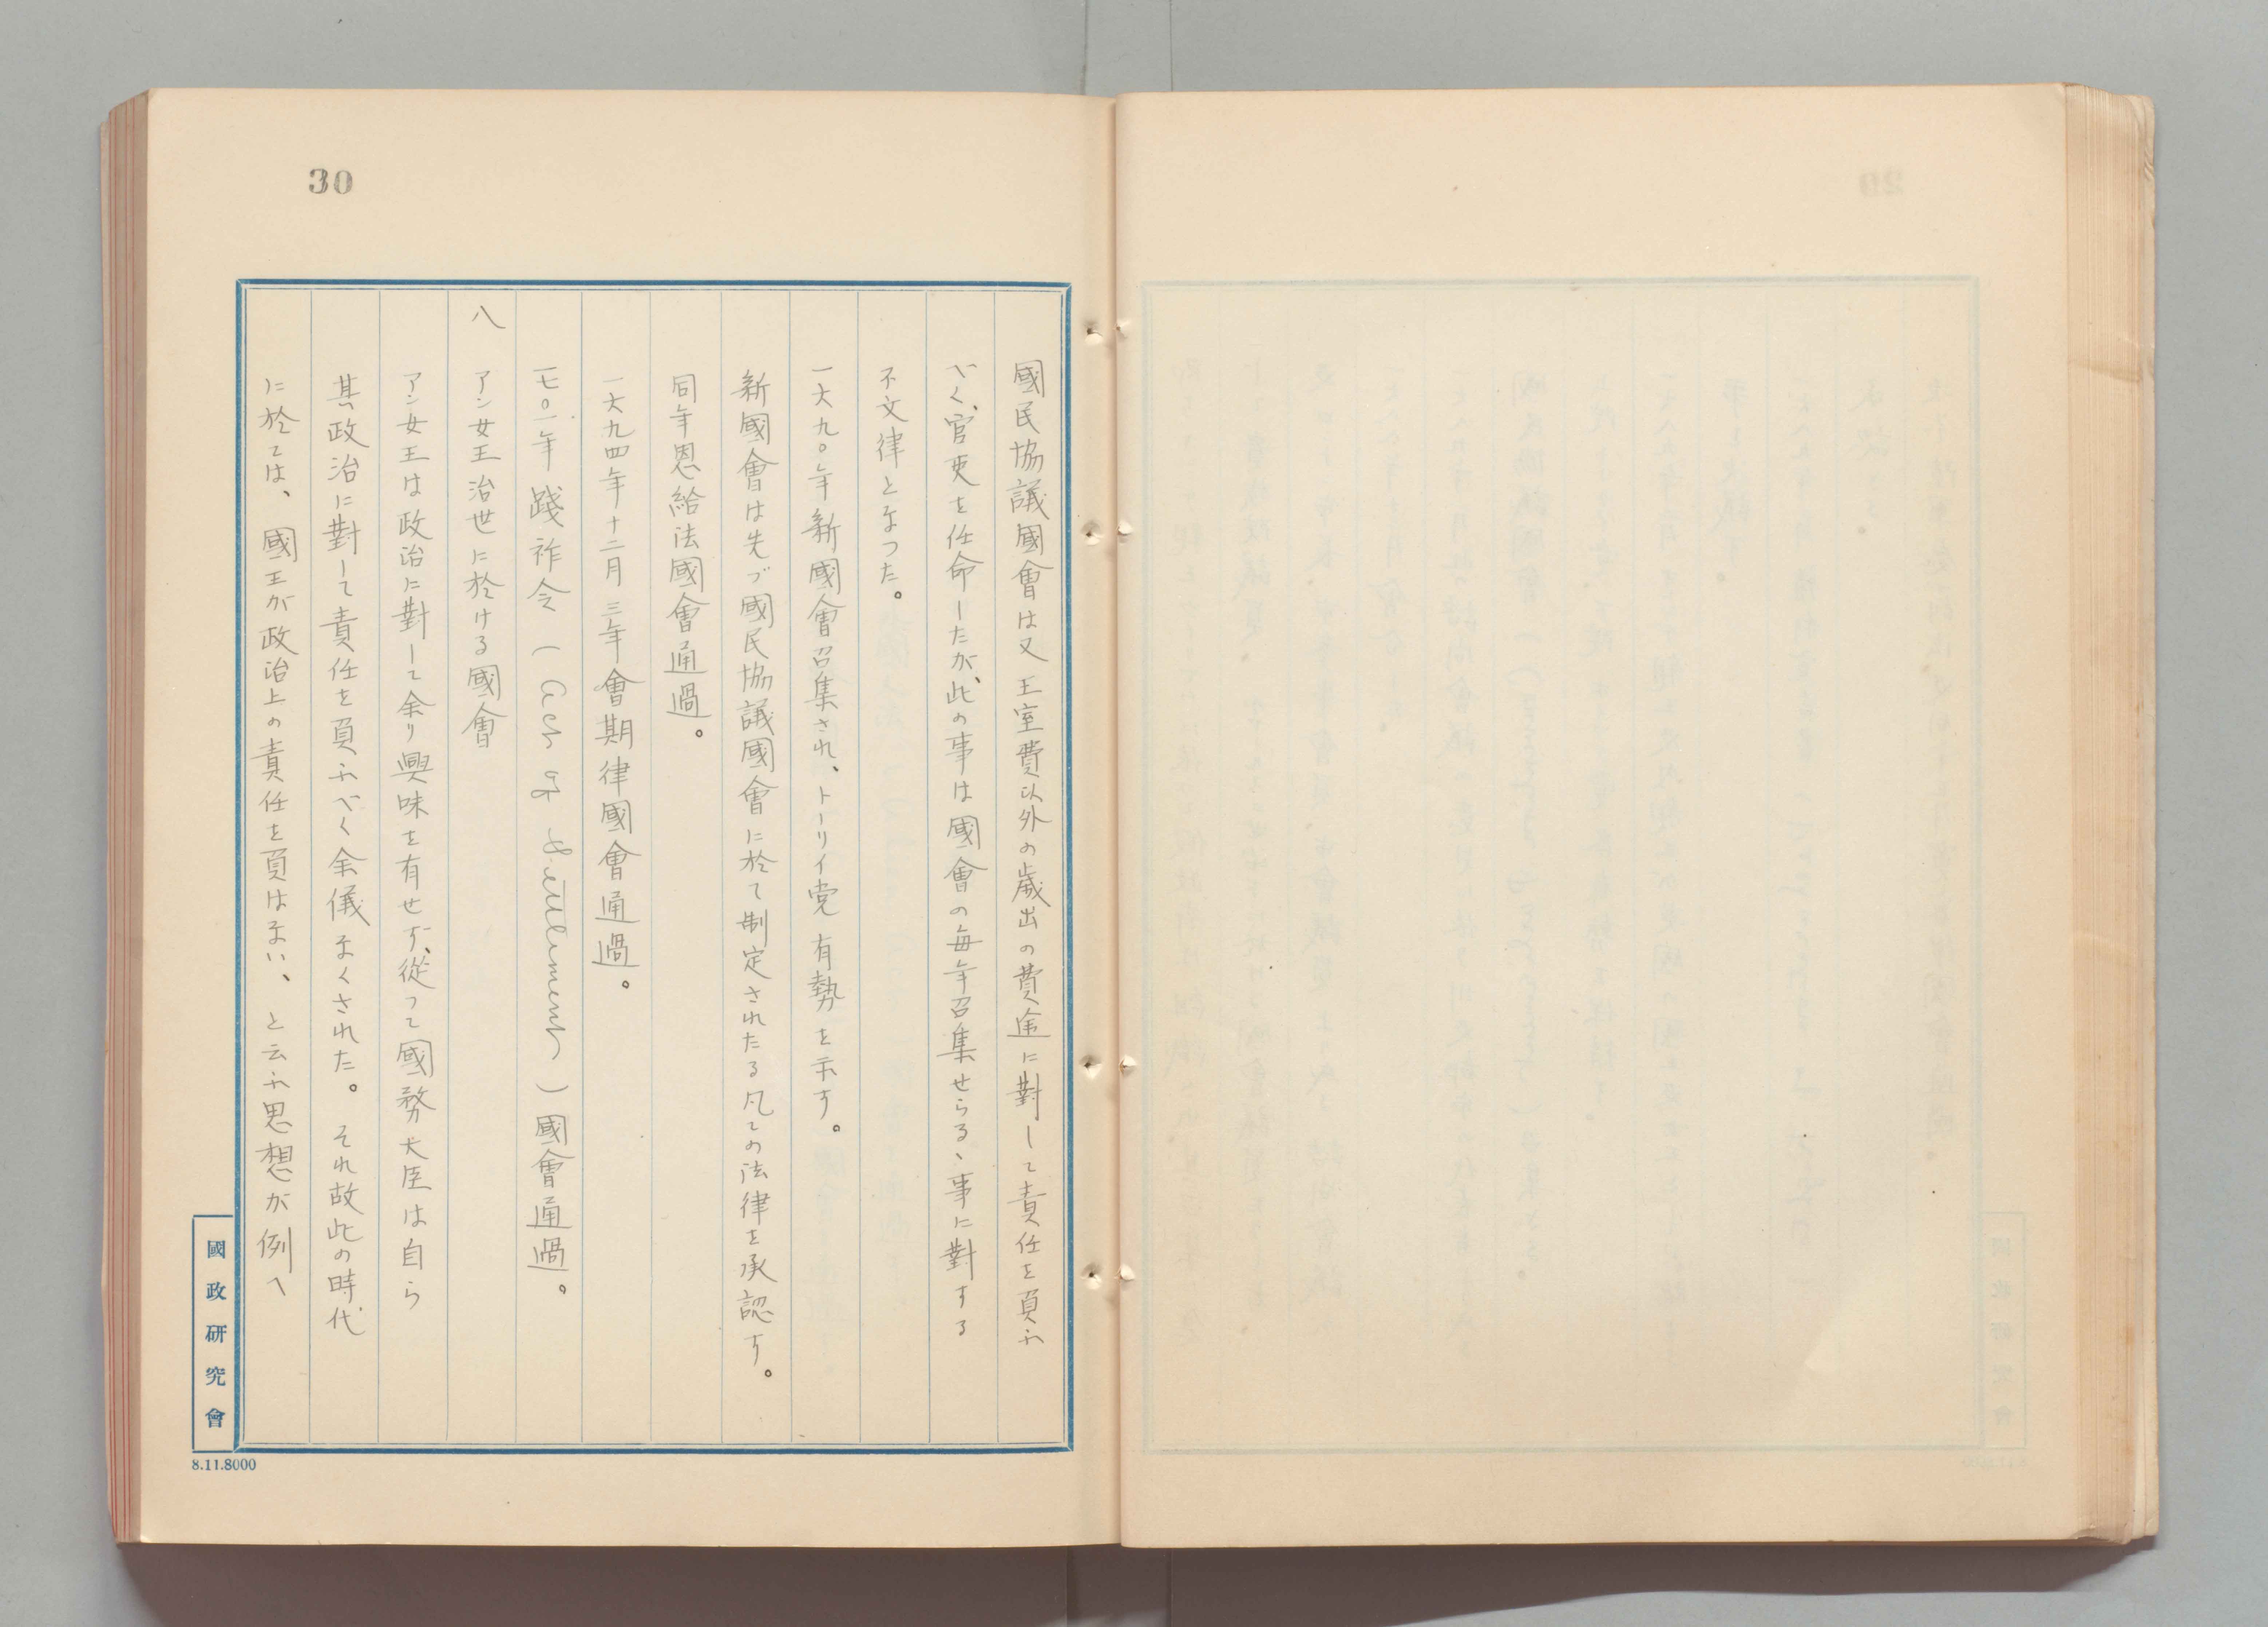 30
國民協議國會は又王室費以外の歳出の費途に對して責任を負ふ
べく、官吏を任命したが、此の事は國會の毎年召集せらるゝ事に對する
不文律となつた。
一六九〇年新國會召集され、トーリイ党有勢を示す。
新國會は先づ國民協議國會に於て制定されたる凡ての法律を承認す。
同年恩給法國會通過。
一六九四年十二月三年會期律國會通過。
一七〇一年踐祚令(Act of Settlement)國會通過。
八 アン女王治世に於ける國會
アン女王は政治に對して余り興味を有せず、從つて國務大臣は自ら
其政治に對して責任を負ふべく余儀なくされた。それ故此の時代
に於ては、國王が政治上の責任を負はない、と云ふ思想が例へ
國政研究會
8.11.8000